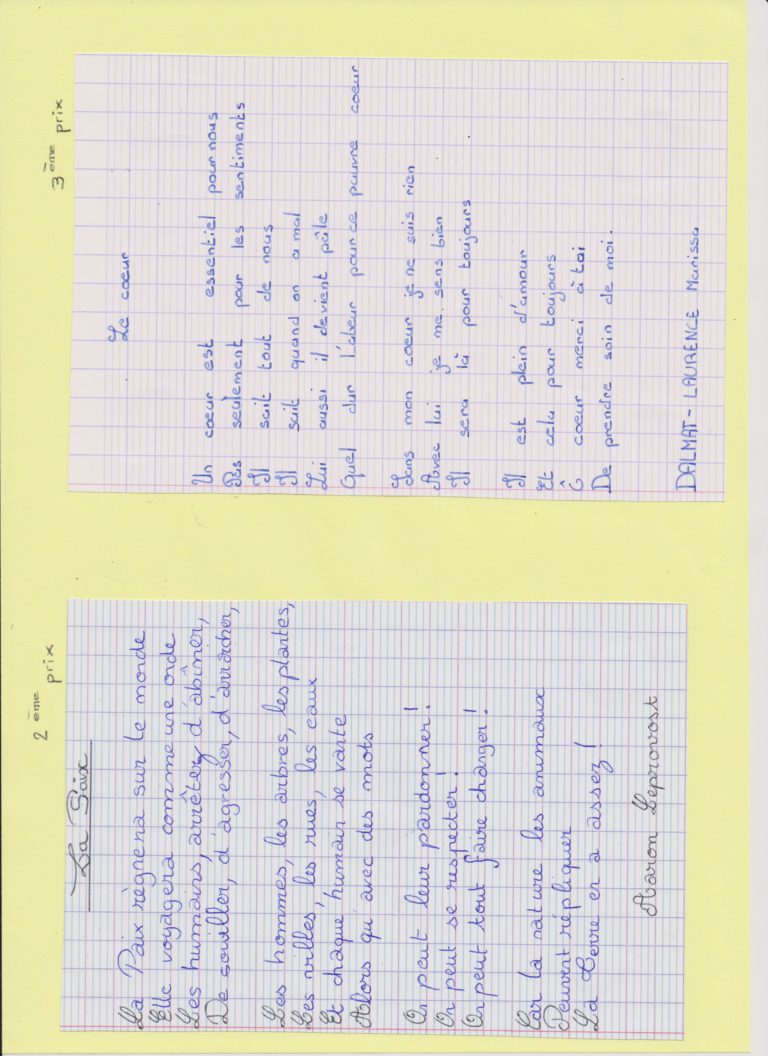 2ème prix
La Paix
La Paix règnera sur le monde
Elle voyagera comme une onde
Les humains, arrêtez d'abîmer,
De souiller, d'agresser, d'arracher,
Les hommes, les arbres, les plantes,
Les villes, les rues, les eaux
Et chaque humain se vante
Alors qu'avec des mots
On peut leur pardonner!
On peut se respecter!
On peut tout faire changer!
Car la nature les animaux
Peuvent répliquer
La Terre en a assez!
Aaron Leprovost
3ème prix
Le coeur
Un coeur est essentiel pour nous
Pas seulement pour les sentiments
Il sait tout de nous
Il sait quand on a mal
Lui aussi il devient pâle
Quel dur labeur pour ce pauvre coeur
Sans mon coeur je ne suis rien
Avec lui je me sens bien
Il sera là pour toujours
Il est plein d'amour
Et cela pour toujours
Ô coeur merci à toi
De prendre soin de moi.
DALMAT - LAURENCE Marissa